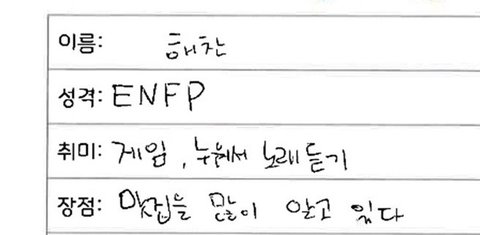 이름: 해찬
성격: ENFP
취미: 게임, 누워서 노래 듣기
장점: 맛집을 많이 알고 있다